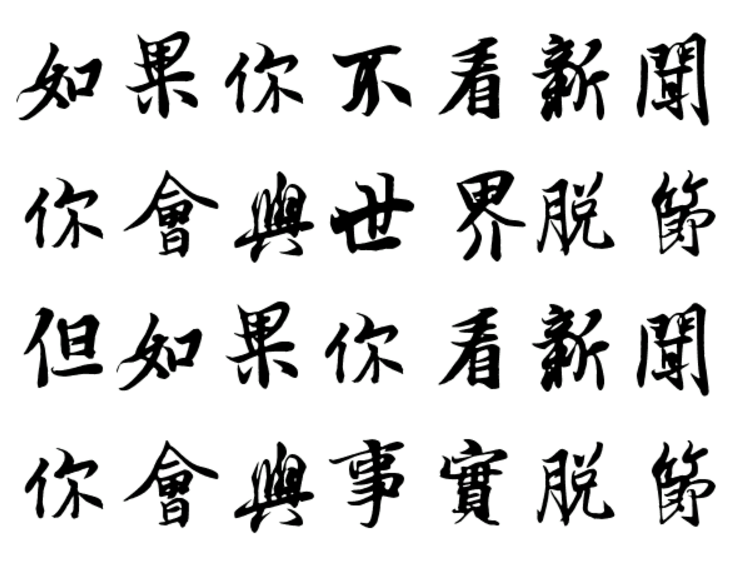 如果你不看新聞
你會與世界脫節
但如果你看新聞
你會與事實脫節